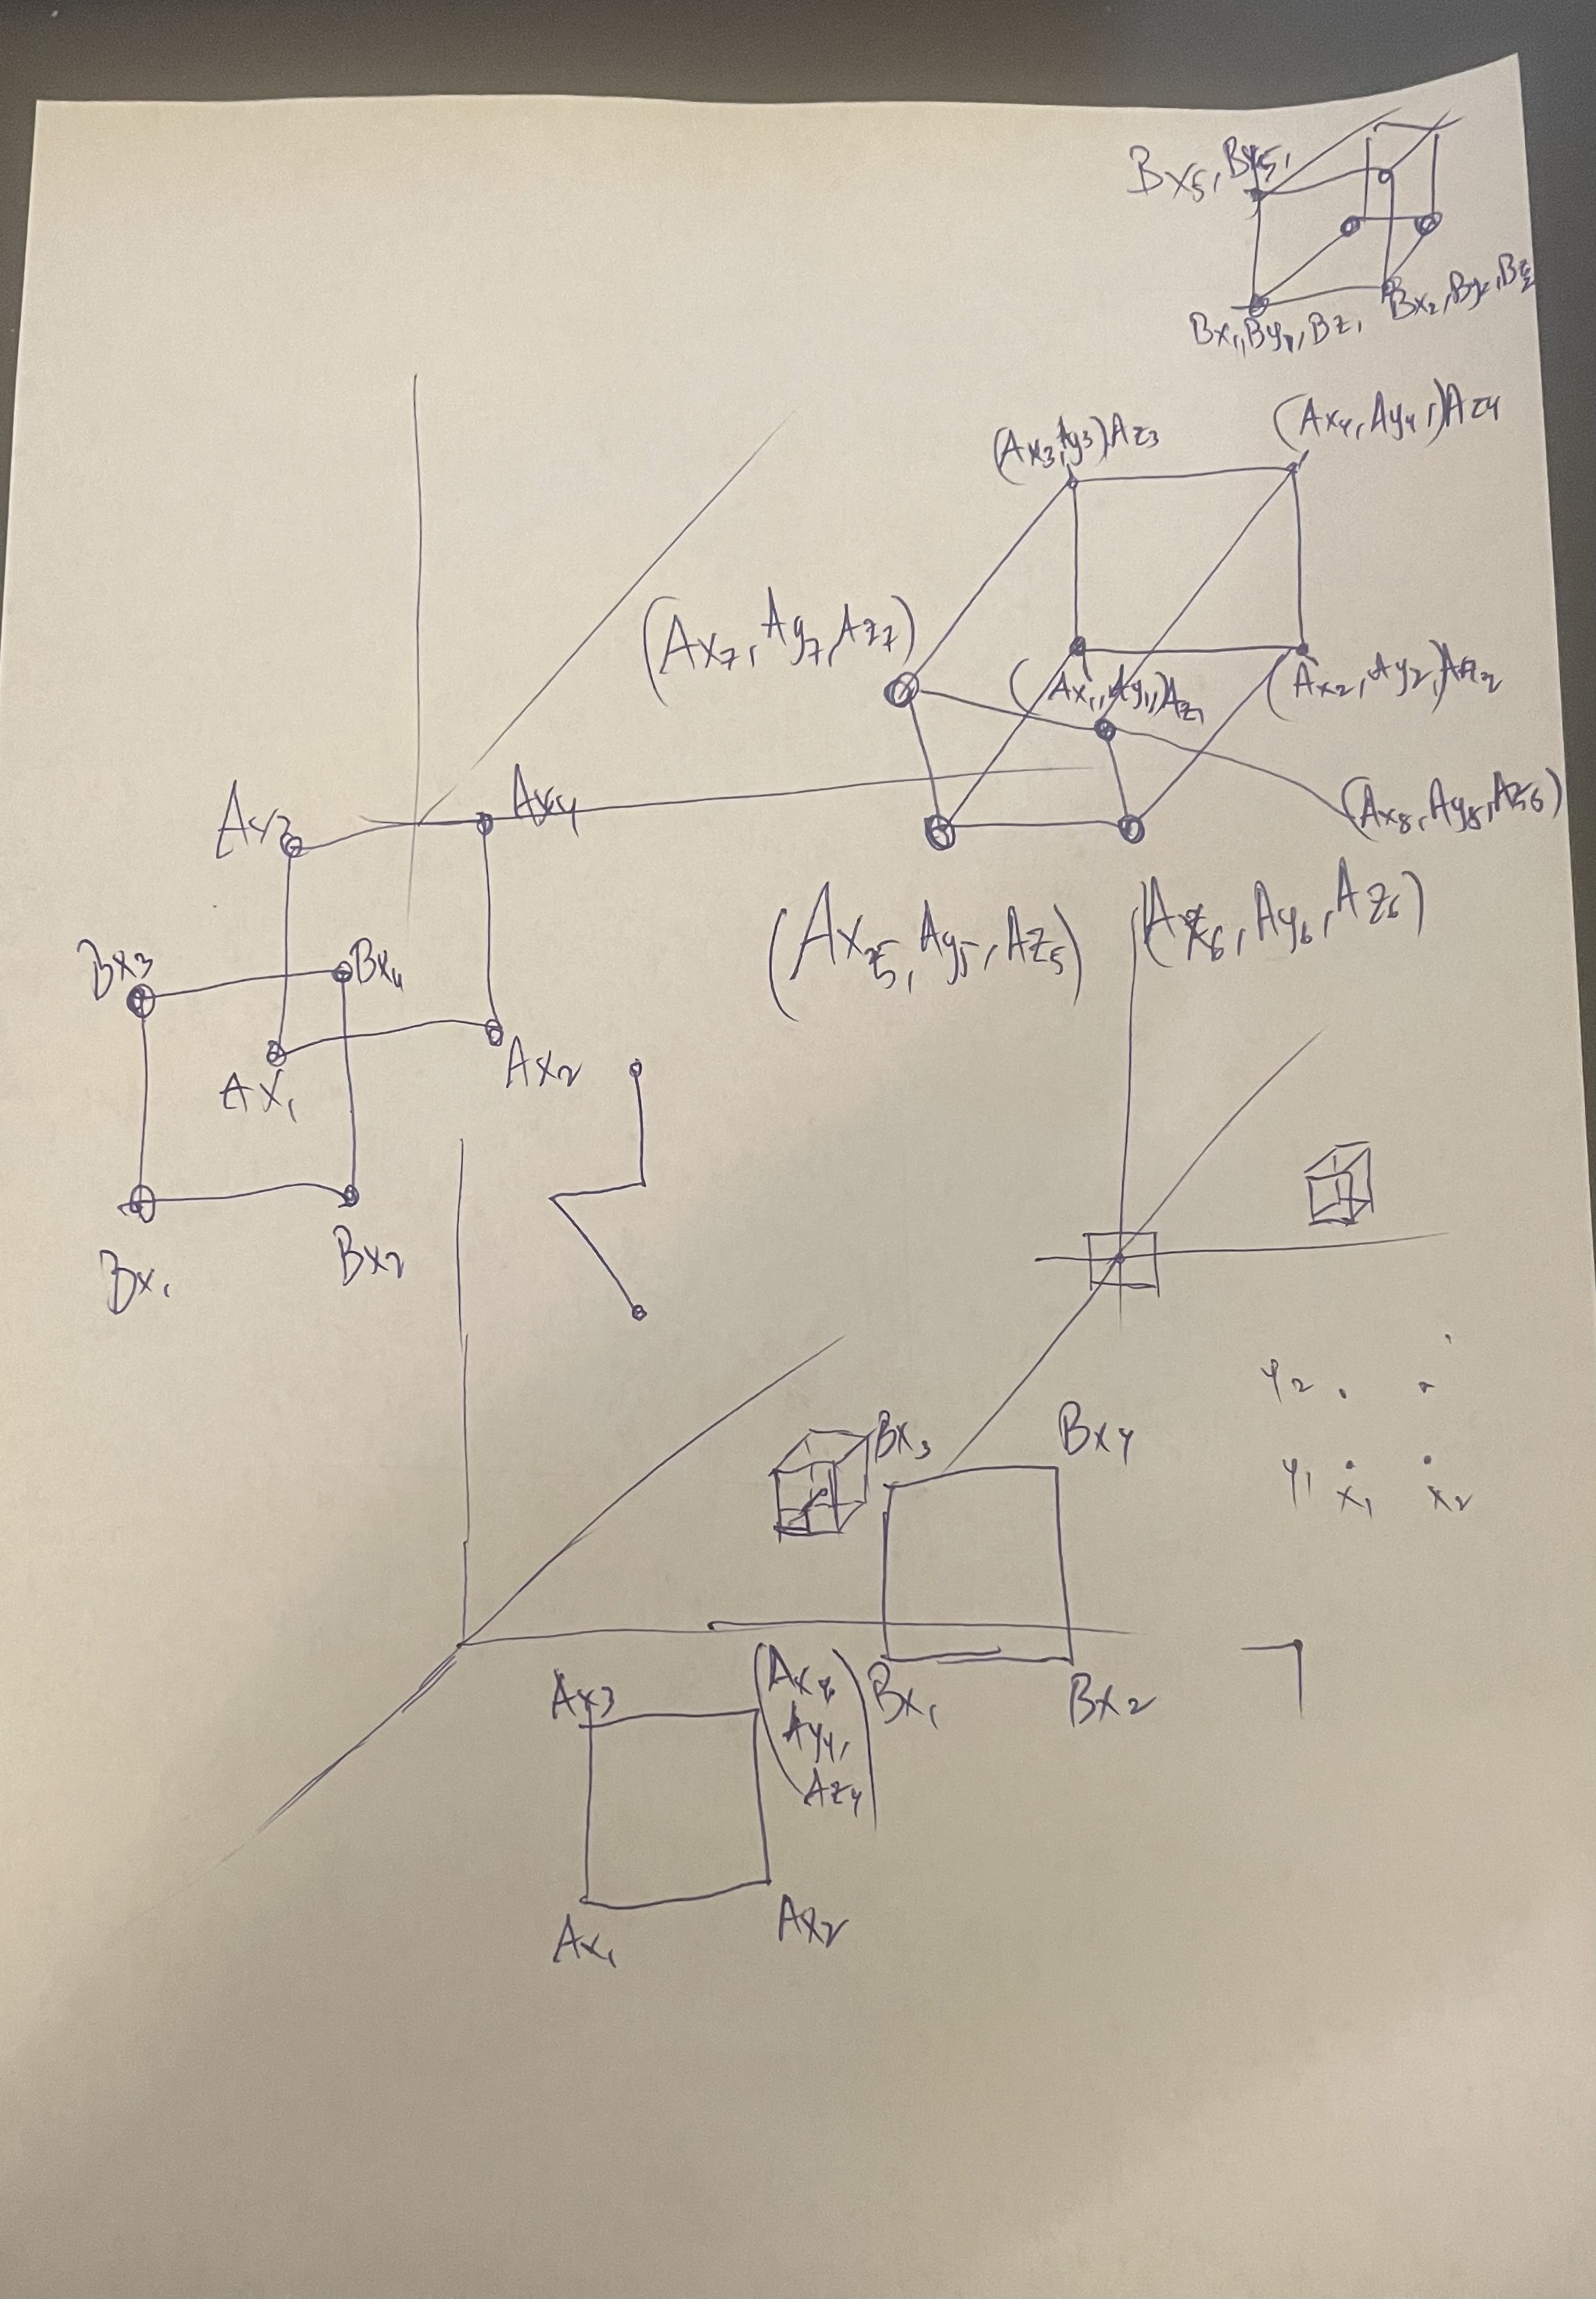 Bx5, By5,
Bx1, By1, Bz1
Bx2, By2, Bz2
(Ax3, Ay3) Az3
(Ax4, Ay4,) Az4
(Ax7, Ay7, Az7)
(Ax1, Ay1,) Az1
(Ax2, Ay2,) Az2
Ax3
Ax4
(Ax8, Ay8, Az6)
(Ax5, Ay5, Az5)
(Ax6, Ay6, Az6)
Bx3
Bx4
Ax1
Ax2
Bx1
Bx2
y2
Bx3
Bx4
y1
x1
x2
Ax3
(Ax4,
Ay4,
Az4)
Bx1
Bx2
Ax1
Ax2